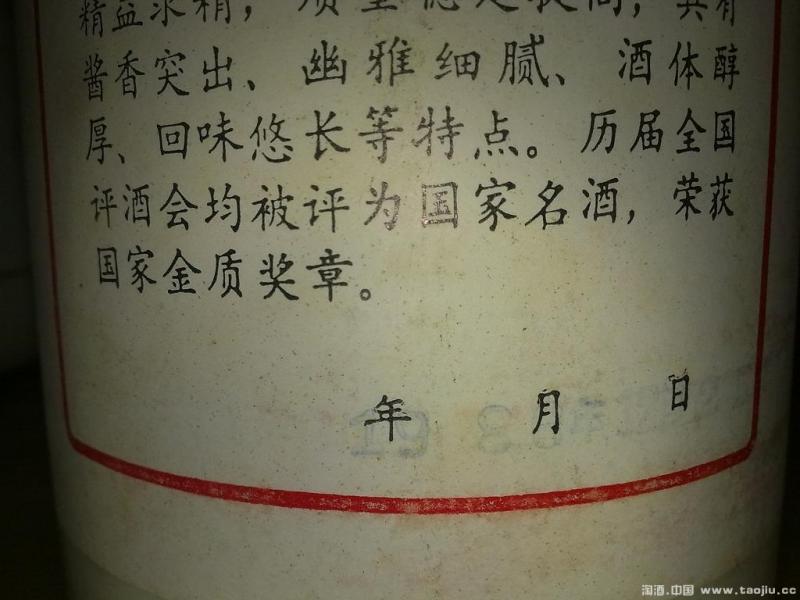 精益求精，质量稳定提高，具有
酱香突出、幽雅细腻、酒体醇
厚、回味悠长等特点。历届全国
评酒会均被评为国家名酒，荣获
国家金质奖章。
年 月 日
淘酒.中国 www.taojiu.cc